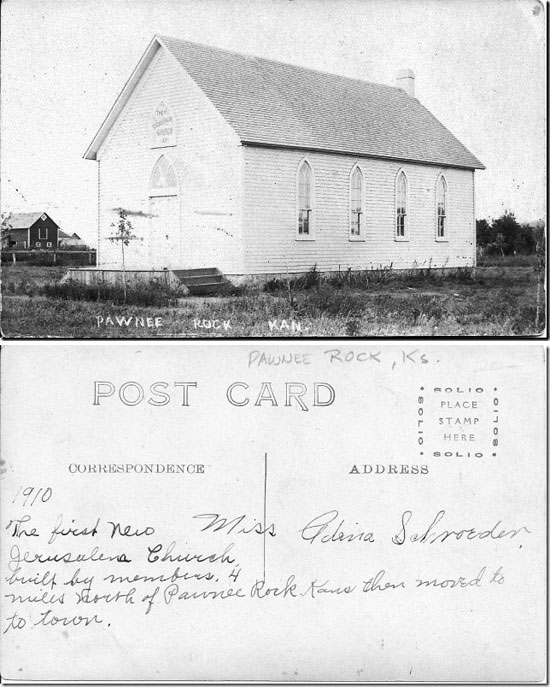 PAWNEE ROCK KAN.
PAWNEE ROCK, Ks.
POST CARD
SOLIO
SOLIO
SOLIO
SOLIO
PLACE
STAMP
HERE
CORRESPONDENCE
ADDRESS
1910
The first New
Jerusalem Church
built by members. 4
miles north of Pawnee Rock Kans then moved to
to town.
Miss Adina Schroeder